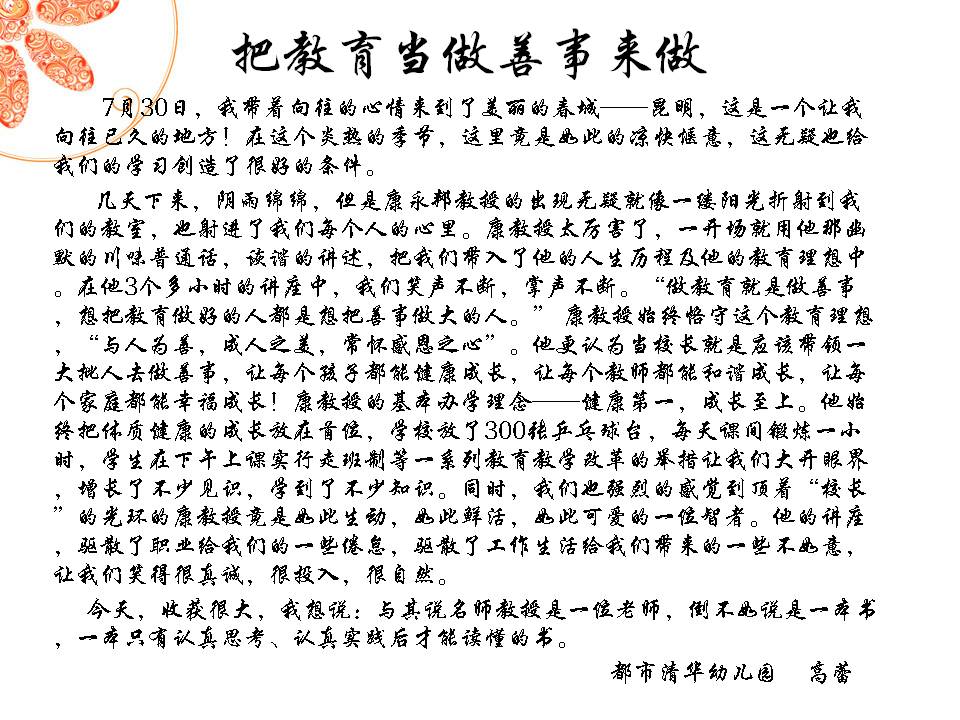 把教育当做善事来做
7月30日，我带着向往的心情来到了美丽的春城——昆明，这是一个让我
向往已久的地方！在这个炎热的季节，这里竟是如此的凉快惬意，这无疑也给
我们的学习创造了很好的条件。
几天下来，阴雨绵绵，但是康永邦教授的出现无疑就像一缕阳光折射到我
们的教室，也射进了我们每个人的心里。康教授太厉害了，一开场就用他那幽
默的川味普通话，诙谐的讲述，把我们带入了他的人生历程及他的教育理想中
。在他3个多小时的讲座中，我们笑声不断，掌声不断。“做教育就是做善事
，想把教育做好的人都是想把善事做大的人。” 康教授始终恪守这个教育理想
，“与人为善，成人之美，常怀感恩之心”。他更认为当校长就是应该带领一
大批人去做善事，让每个孩子都能健康成长，让每个教师都能和谐成长，让每
个家庭都能幸福成长！康教授的基本办学理念——健康第一，成长至上。他始
终把体质健康的成长放在首位，学校放了300张乒乓球台，每天课间锻炼一小
时，学生在下午上课实行走班制等一系列教育教学改革的举措让我们大开眼界
，增长了不少见识，学到了不少知识。同时，我们也强烈的感觉到顶着“校长
”的光环的康教授竟是如此生动，如此鲜活，如此可爱的一位智者。他的讲座
，驱散了职业给我们的一些倦怠，驱散了工作生活给我们带来的一些不如意，
让我们笑得很真诚，很投入，很自然。
今天，收获很大，我想说：与其说名师教授是一位老师，倒不如说是一本书
，一本只有认真思考、认真实践后才能读懂的书。
都市清华幼儿园 高蕾